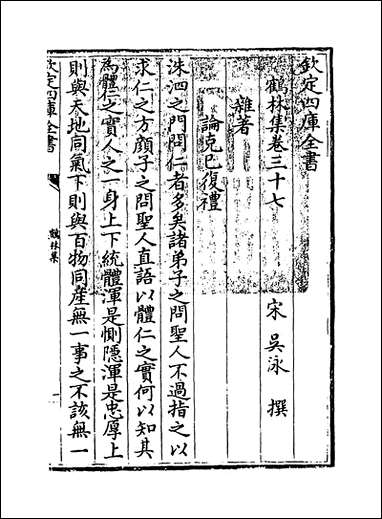 欽定四庫全書
鶴林集卷三十七
宋 吳泳 撰
雜著
論克己復禮
洙泗之門問仁者多矣諸弟子之問聖人不過指之以
求仁之方顔子之問聖人直語以體仁之實何以知其
為體仁之實人之一身上下統體渾是惻隠渾是忠厚上
則與天地同氣下則與百物同産無一事之不該無一
欽定四庫全書
鶴林集
一